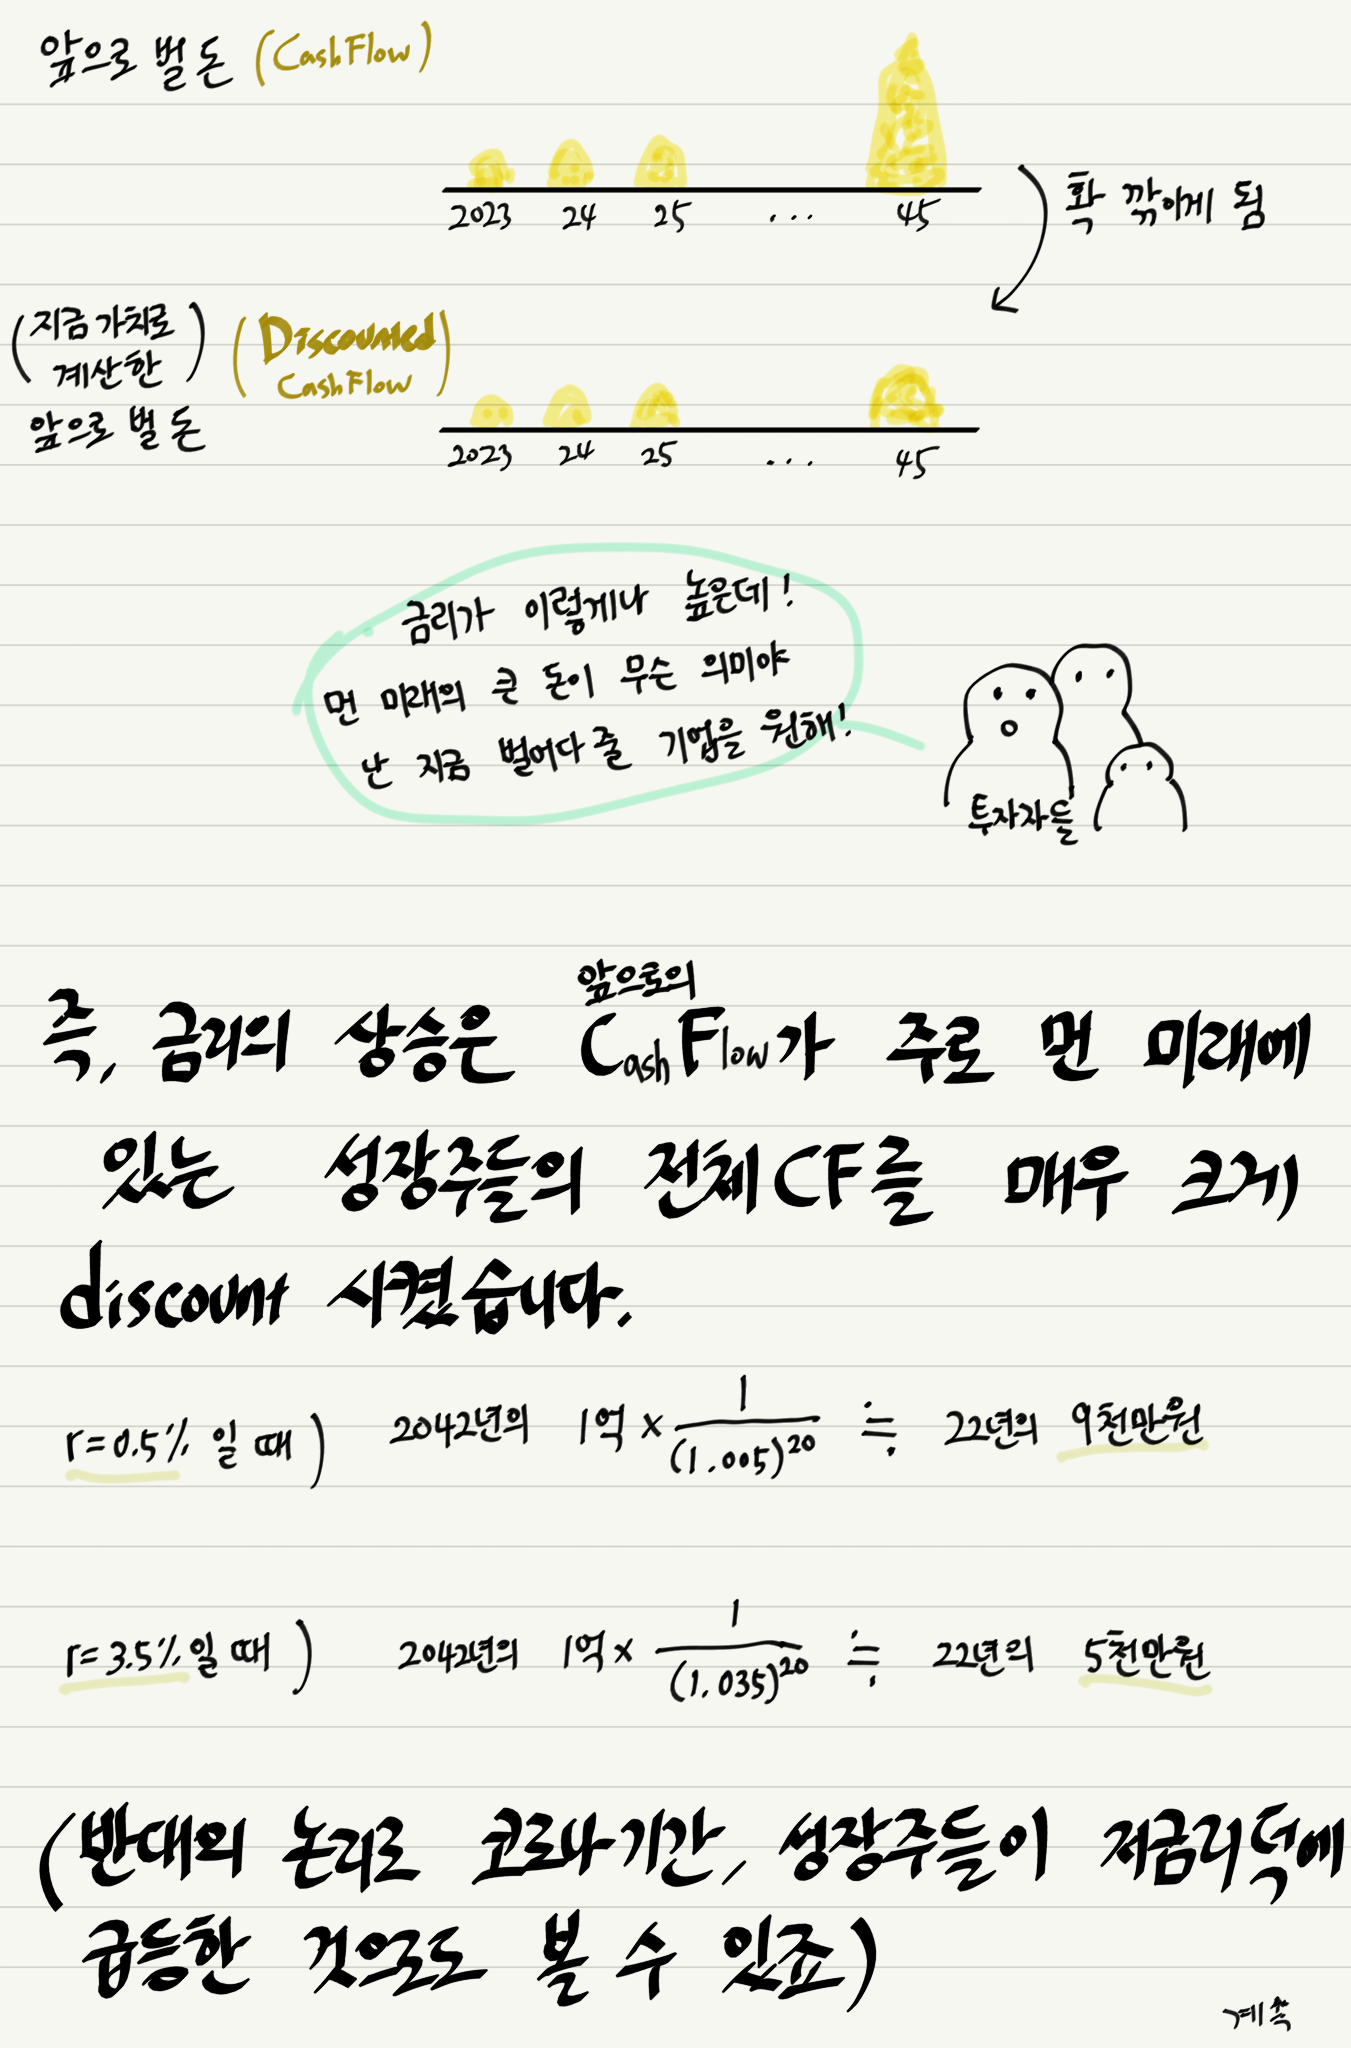 앞으로 벌 돈 (CashFlow)
2023 24 25 ... 45
확 깎이게 됨
(지금 가치로
계산한)
(Discounted
CashFlow)
앞으로 벌 돈
2023 24 25 ... 45
금리가 이렇게나 높은데!
먼 미래의 큰 돈이 무슨 의미야
난 지금 벌어다 줄 기업을 원해!
투자자들
앞으로의
즉, 금리의 상승은 CashFlow가 주로 먼 미래에
있는 성장주들의 전체CF를 매우 크게
discount 시켰습니다.
r=0.5% 일 때) 2042년의 1억 × 1/(1.005)^20 ≒ 22년의 9천만원
r=3.5%일 때) 2042년의 1억× 1/(1.035)^20 ≒ 22년의 5천만원
(반대의 논리로 코로나기간, 성장주들이 저금리덕에
급등한 것으로도 볼 수 있죠)
계속